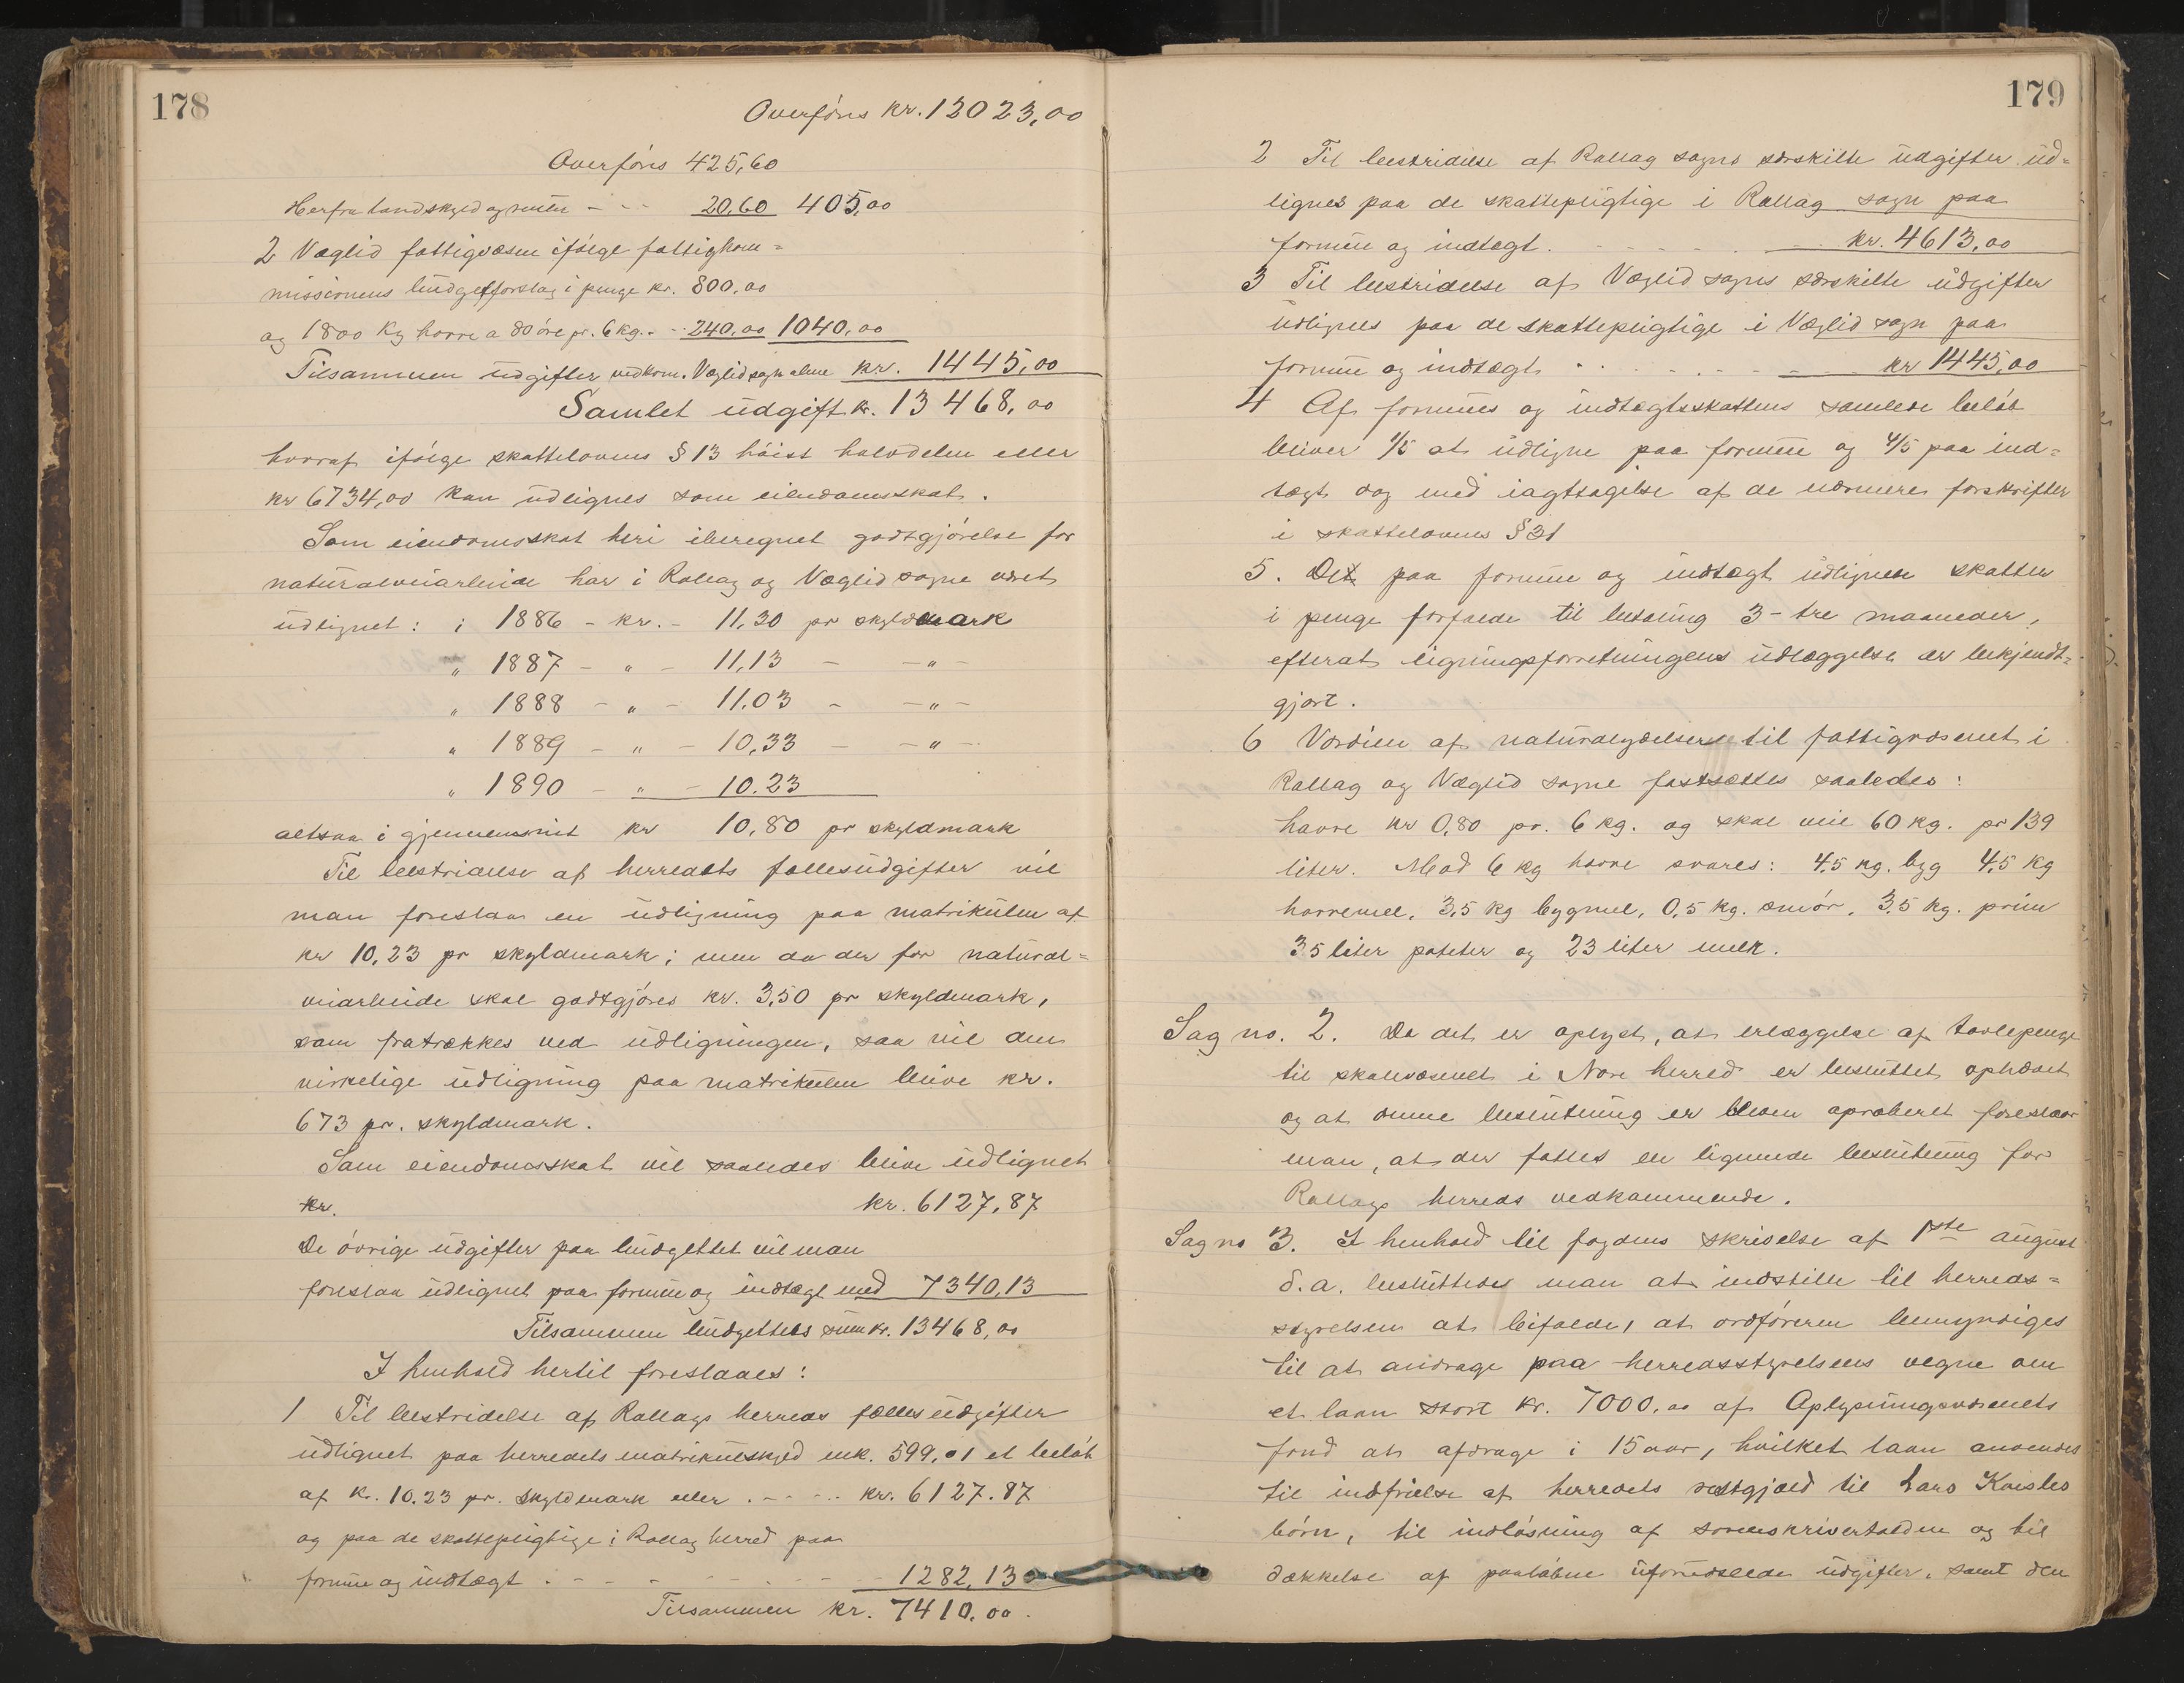 178
Overføres kr. 12023,00
Overføres 425,60
Herfra landskyld og renter - - - 20,60 405,00
2 Væglid fattigvæsen ifølge fattigkom=
missionens budgetforslag i penge kr. 800,00
og 1800 kg havre a 80 øre pr. 6 kg. - - 240,00 1040,00
Tilsammen udgifter vedkom. Væglid sogn alene kr. 1445,00
Samlet udgift kr. 13468,00
hvoraf ifølge skattelovens § 13 høist halvdelen eller
kr 6734,00 kan udlignes som eiendomsskat.
Som eiendomsskat heri iberegnet godtgjørelse for
naturalveiarbeide har i Rollag og Væglid sogne været
udlignet: i 1886 - kr. - 11,30 pr skyldmark
" 1887 - " - 11,13 - - " -
" 1888 - " - 11.03 - - " -
" 1889 - " - 10,33 - - " -
" 1890 - " - 10.23
altsaa i gjennemsnit kr 10,80 pr skyldmark
Til bestridelse af herredets fællesudgifter vil
man foreslaa en udligning paa matrikulen af
kr 10,23 pr skyldmark; men da der for natural=
veiarbeide skal godtgjøres kr. 3,50 pr skyldmark,
som fratrækkes ved udligningen, saa vil den
virkelige udligning paa matrikulen blive kr.
673 pr. skyldmark.
Som eiendomsskat vil saaledes blive udlignet
kr. kr. 6127,87
De øvrige udgifter paa budgettet vil man
foreslaa udlignet paa formue og indtægt med 7340,13
Tilsammen budgettets sum kr. 13468,00
I henhold hertil foreslaaes:
1 Til bestridelse af Rollags herreds fælles udgifter
udlignet paa herredets matrikulskyld mk. 599,01 et beløb
af kr. 10.23 pr. skyldmark eller . - - - . kr. 6127.87
og paa de skattepligtige i Rollag herred paa
formue og indtægt . - - - - - - - 1282,13
Tilsammen kr. 7410,00.
179
2 Til bestridelse af Rollag sogns særskilte udgifter ud=
lignes paa de skattepligtige i Rollag sogn paa
formue og indtægt. - - - - - kr. 4613,00
3 Til bestridelse af Væglid sogns særskilte udgifter
udlignes paa de skattepligtige i Væglid sogn paa
formue og indtægt . . . . . - - kr 1445,00
4 Af formues og indtægtsskattens samlede beløb
bliver 1/5 at udligne paa formue og 4/5 paa ind=
tægt dog med iagttagelse af de nærmere forskrifter
i skattelovens § 31
5. Det paa formue og indtægt udlignede skatter
i penge forfalde til betaling 3 - tre maaneder,
efterat ligningsforretningens udlæggelse er bekjendt=
gjort.
6 Værdien af naturalydelserne til fattigvæsenet i
Rollag og Væglid sogne fastsættes saaledes:
havre kr 0,80 pr. 6 kg. og skal veie 60 kg. pr 139
liter. Mod 6 kg havre svares: 4,5 kg. byg 4,5 kg
havremel, 3,5 kg bygmel, 0,5 kg. smør, 3,5 kg. prim
35 liter poteter og 23 liter melk.
Sag no. 2. Da det er oplyst, at erlæggelse af tavlepenge
til skolevæsenet i Nore herred er besluttet ophævet
og at denne beslutning er bleven aproberet foreslaar
man, at der fattes en lignende beslutning for
Rollags herreds vedkommende.
Sag no 3. I henhold til fogdens skrivelse af 1ste august
d.a. besluttedes man at indstille til herreds=
styrelsen at bifalde, at ordføreren bemyndiges
til at andrage paa herredsstyrelsens vegne om
et laan stort kr. 7000,00 af Oplysningsvæsenets
fond at afdrage i 15 aar, hvilket laan anvendes
til indfrielse af herredets restgjæld til Lars Kvisles
børn, til indløsning af sorenskrivertolden og til
dækkelse af paaløbne uforudseede udgifter, samt den